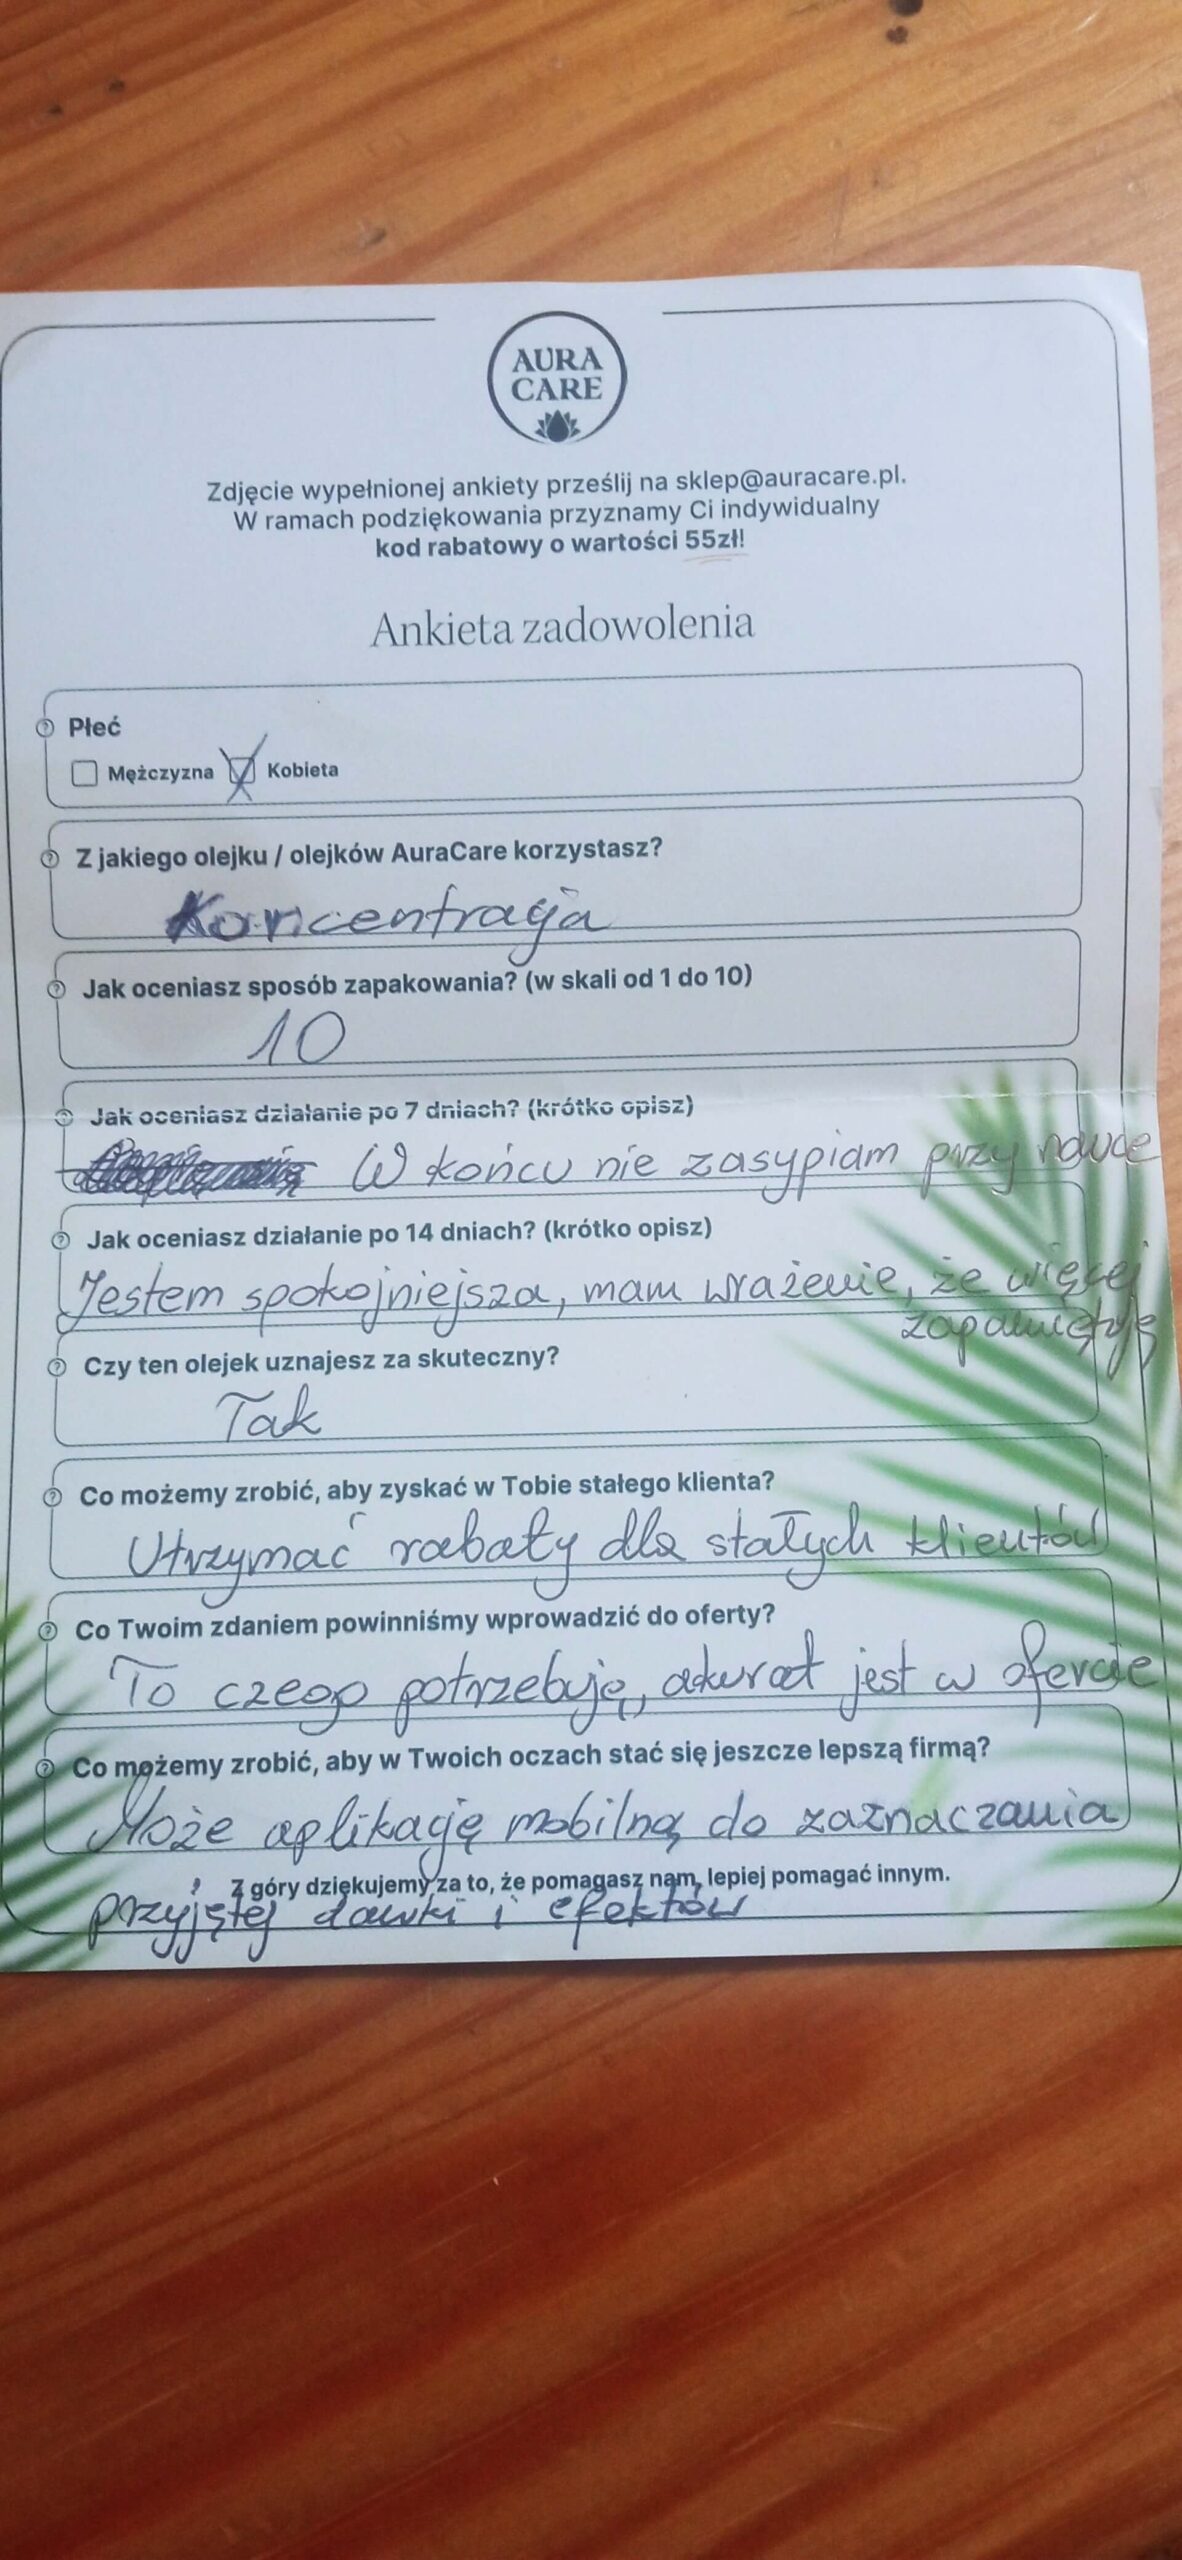 AURA
CARE
Zdjęcie wypełnionej ankiety prześlij na sklep@auracare.pl.
W ramach podziękowania przyznamy Ci indywidualny
kod rabatowy o wartości 55zł!
Ankieta zadowolenia
Płeć
Mężczyzna Kobieta
Z jakiego olejku / olejków AuraCare korzystasz?
Koncentracja
Jak oceniasz sposób zapakowania? (w skali od 1 do 10)
10
Jak oceniasz działanie po 7 dniach? (krótko opisz)
W końcu nie zasypiam przy nauce
Jak oceniasz działanie po 14 dniach? (krótko opisz)
Jestem spokojniejsza, mam wrażenie, że więcej
zapamiętuję
Czy ten olejek uznajesz za skuteczny?
Tak
Co możemy zrobić, aby zyskać w Tobie stałego klienta?
Utrzymać rabaty dla stałych klientów
Co Twoim zdaniem powinniśmy wprowadzić do oferty?
To czego potrzebuję, akurat jest w ofercie
Co możemy zrobić, aby w Twoich oczach stać się jeszcze lepszą firmą?
Może aplikację mobilną do zaznaczania
Z góry dziękujemy za to, że pomagasz nam, lepiej pomagać innym.
przyjętej dawki i efektów